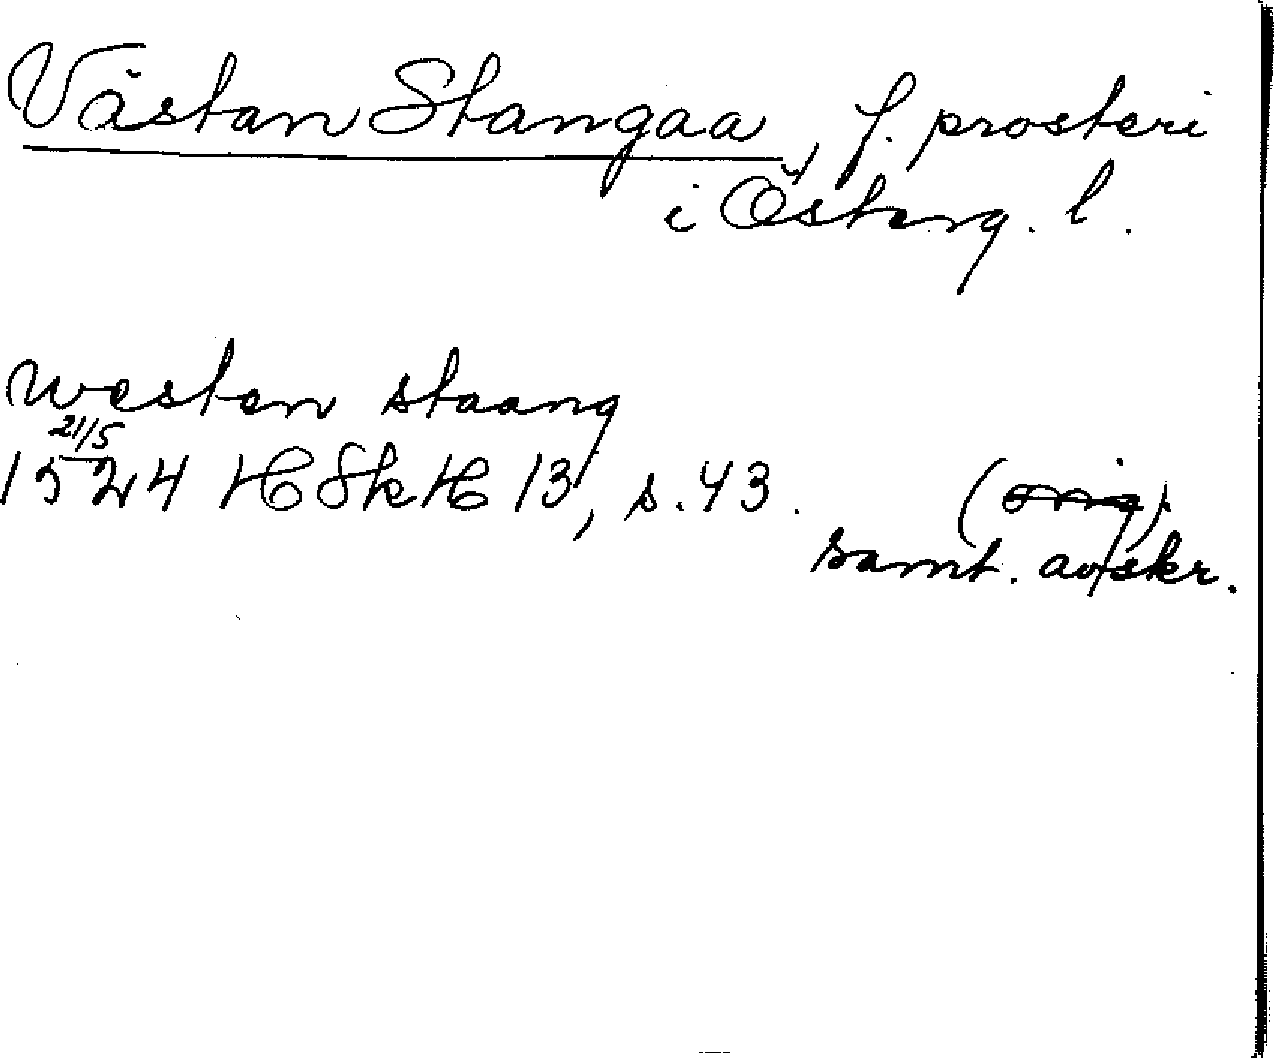 Västan Stangaa, f. prosteri
i Österg. l.
westen staang
21/5
1524 HSkH 13, s. 43. (orig).
samt. avskr.